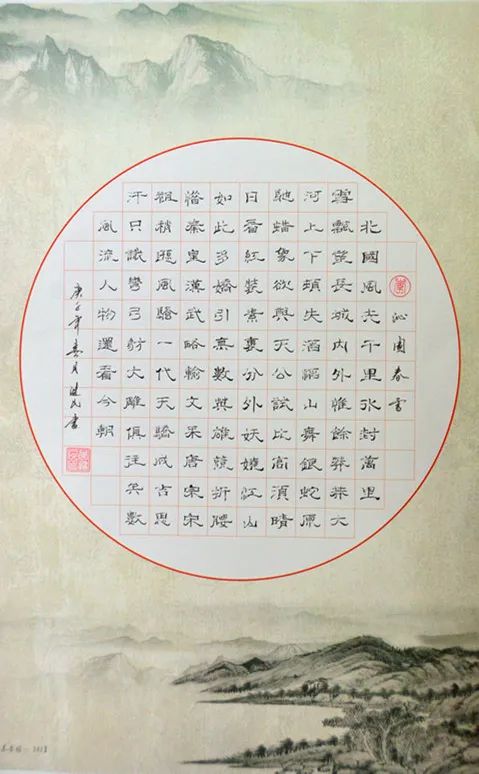 沁園春雪
北國風光千里冰封萬里
雪飄望長城內外惟餘莽莽大
河上下頓失滔滔山舞銀蛇原
馳蠟象欲與天公試比高須晴
日看紅裝素裹分外妖嬈江山
如此多嬌引無數英雄競折腰
惜秦皇漢武略輸文采唐宗宋
祖稍遜風騷一代天驕成吉思
汗只識彎弓射大雕俱往矣數
風流人物還看今朝
庚子年春月建民書